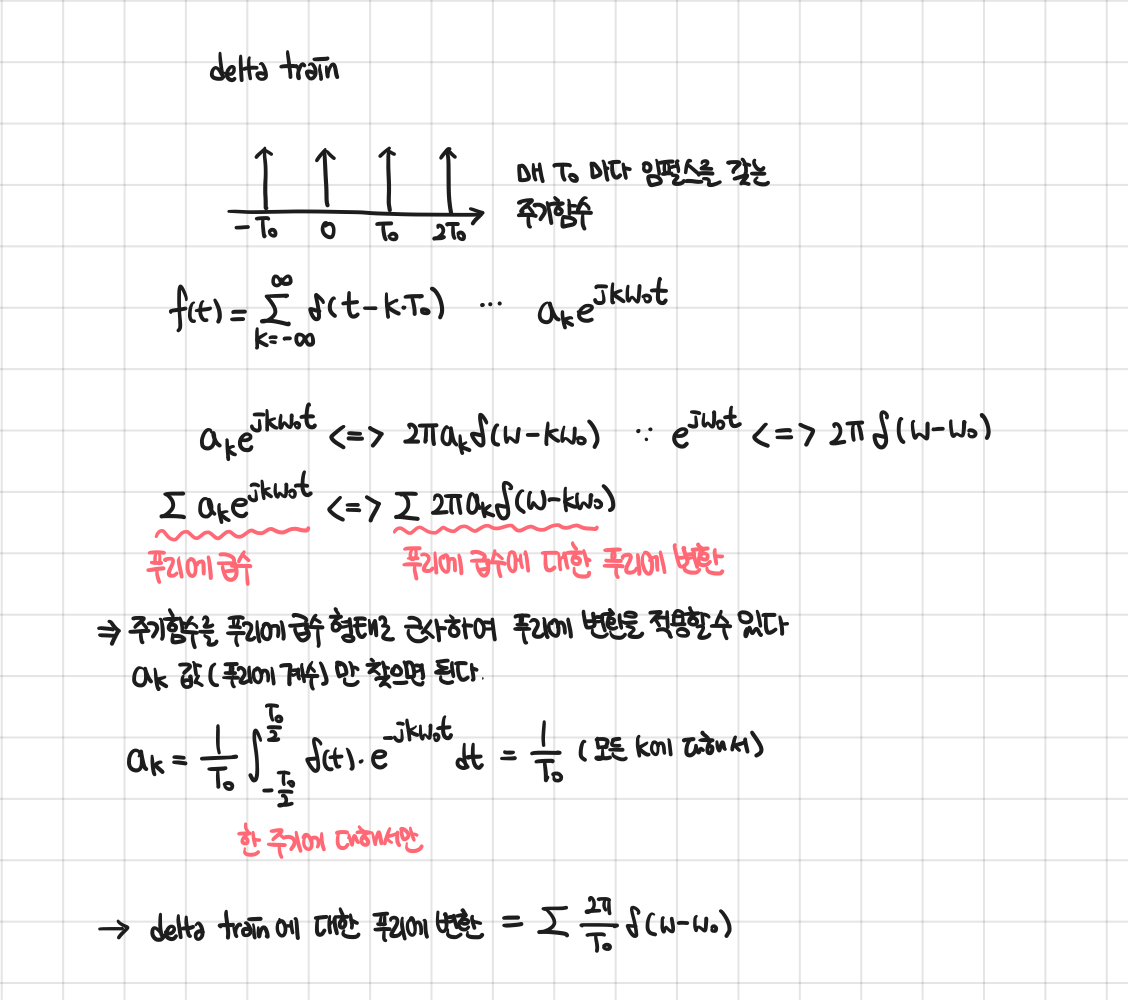 delta train
매 T₀ 마다 임펄스를 갖는
주기함수
-T₀ 0 T₀ 2T₀
f(t) = ∑_{k=-∞}^{∞} δ(t-k·T₀) … aₖe^{jkω₀t}
aₖe^{jkω₀t} <=> 2πaₖδ(ω-kω₀) ∵ e^{jω₀t} <=> 2πδ(ω-ω₀)
∑ aₖe^{jkω₀t} <=> ∑ 2πaₖδ(ω-kω₀)
푸리에 급수 푸리에 급수에 대한 푸리에 변환
⇒ 주기함수를 푸리에 급수 형태로 근사하여 푸리에 변환을 적용할 수 있다
aₖ 값 (푸리에 계수) 만 찾으면 된다.
aₖ = \frac{1}{T₀} ∫_{-\frac{T₀}{2}}^{\frac{T₀}{2}} δ(t)·e^{-jkω₀t} dt = \frac{1}{T₀} (모든 k에 대해서)
한 주기에 대해서만
→ delta train 에 대한 푸리에 변환 = ∑ \frac{2π}{T₀} δ(ω-ω₀)